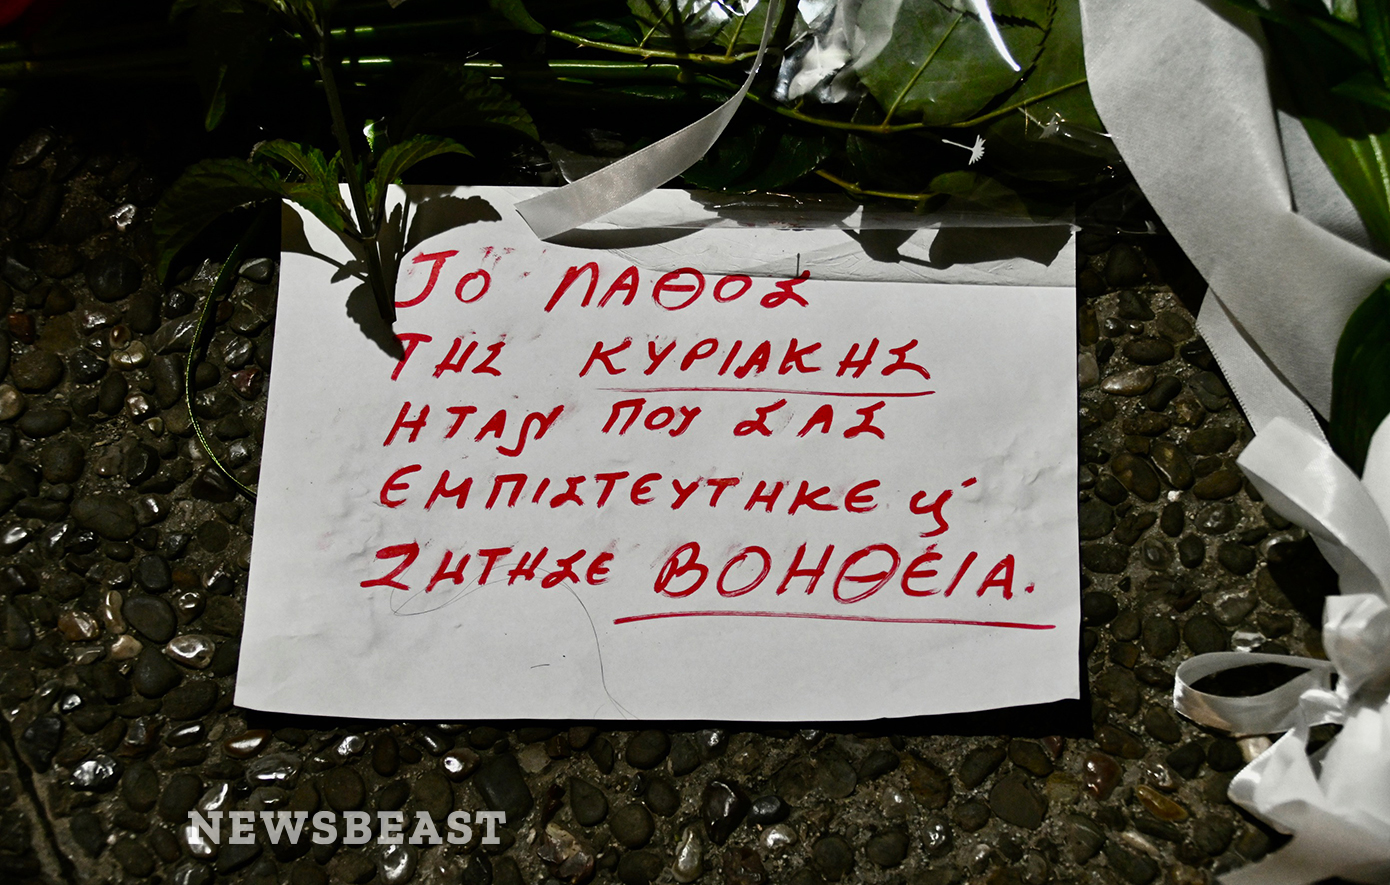 ΤΟ ΠΑΘΟΣ
ΤΗΣ ΚΥΡΙΑΚΗΣ
ΗΤΑΝ ΠΟΥ ΣΑΣ
ΕΜΠΙΣΤΕΥΤΗΚΕ ϗ
ΖΗΤΗΣΕ ΒΟΗΘΕΙΑ.
NEWSBEAST